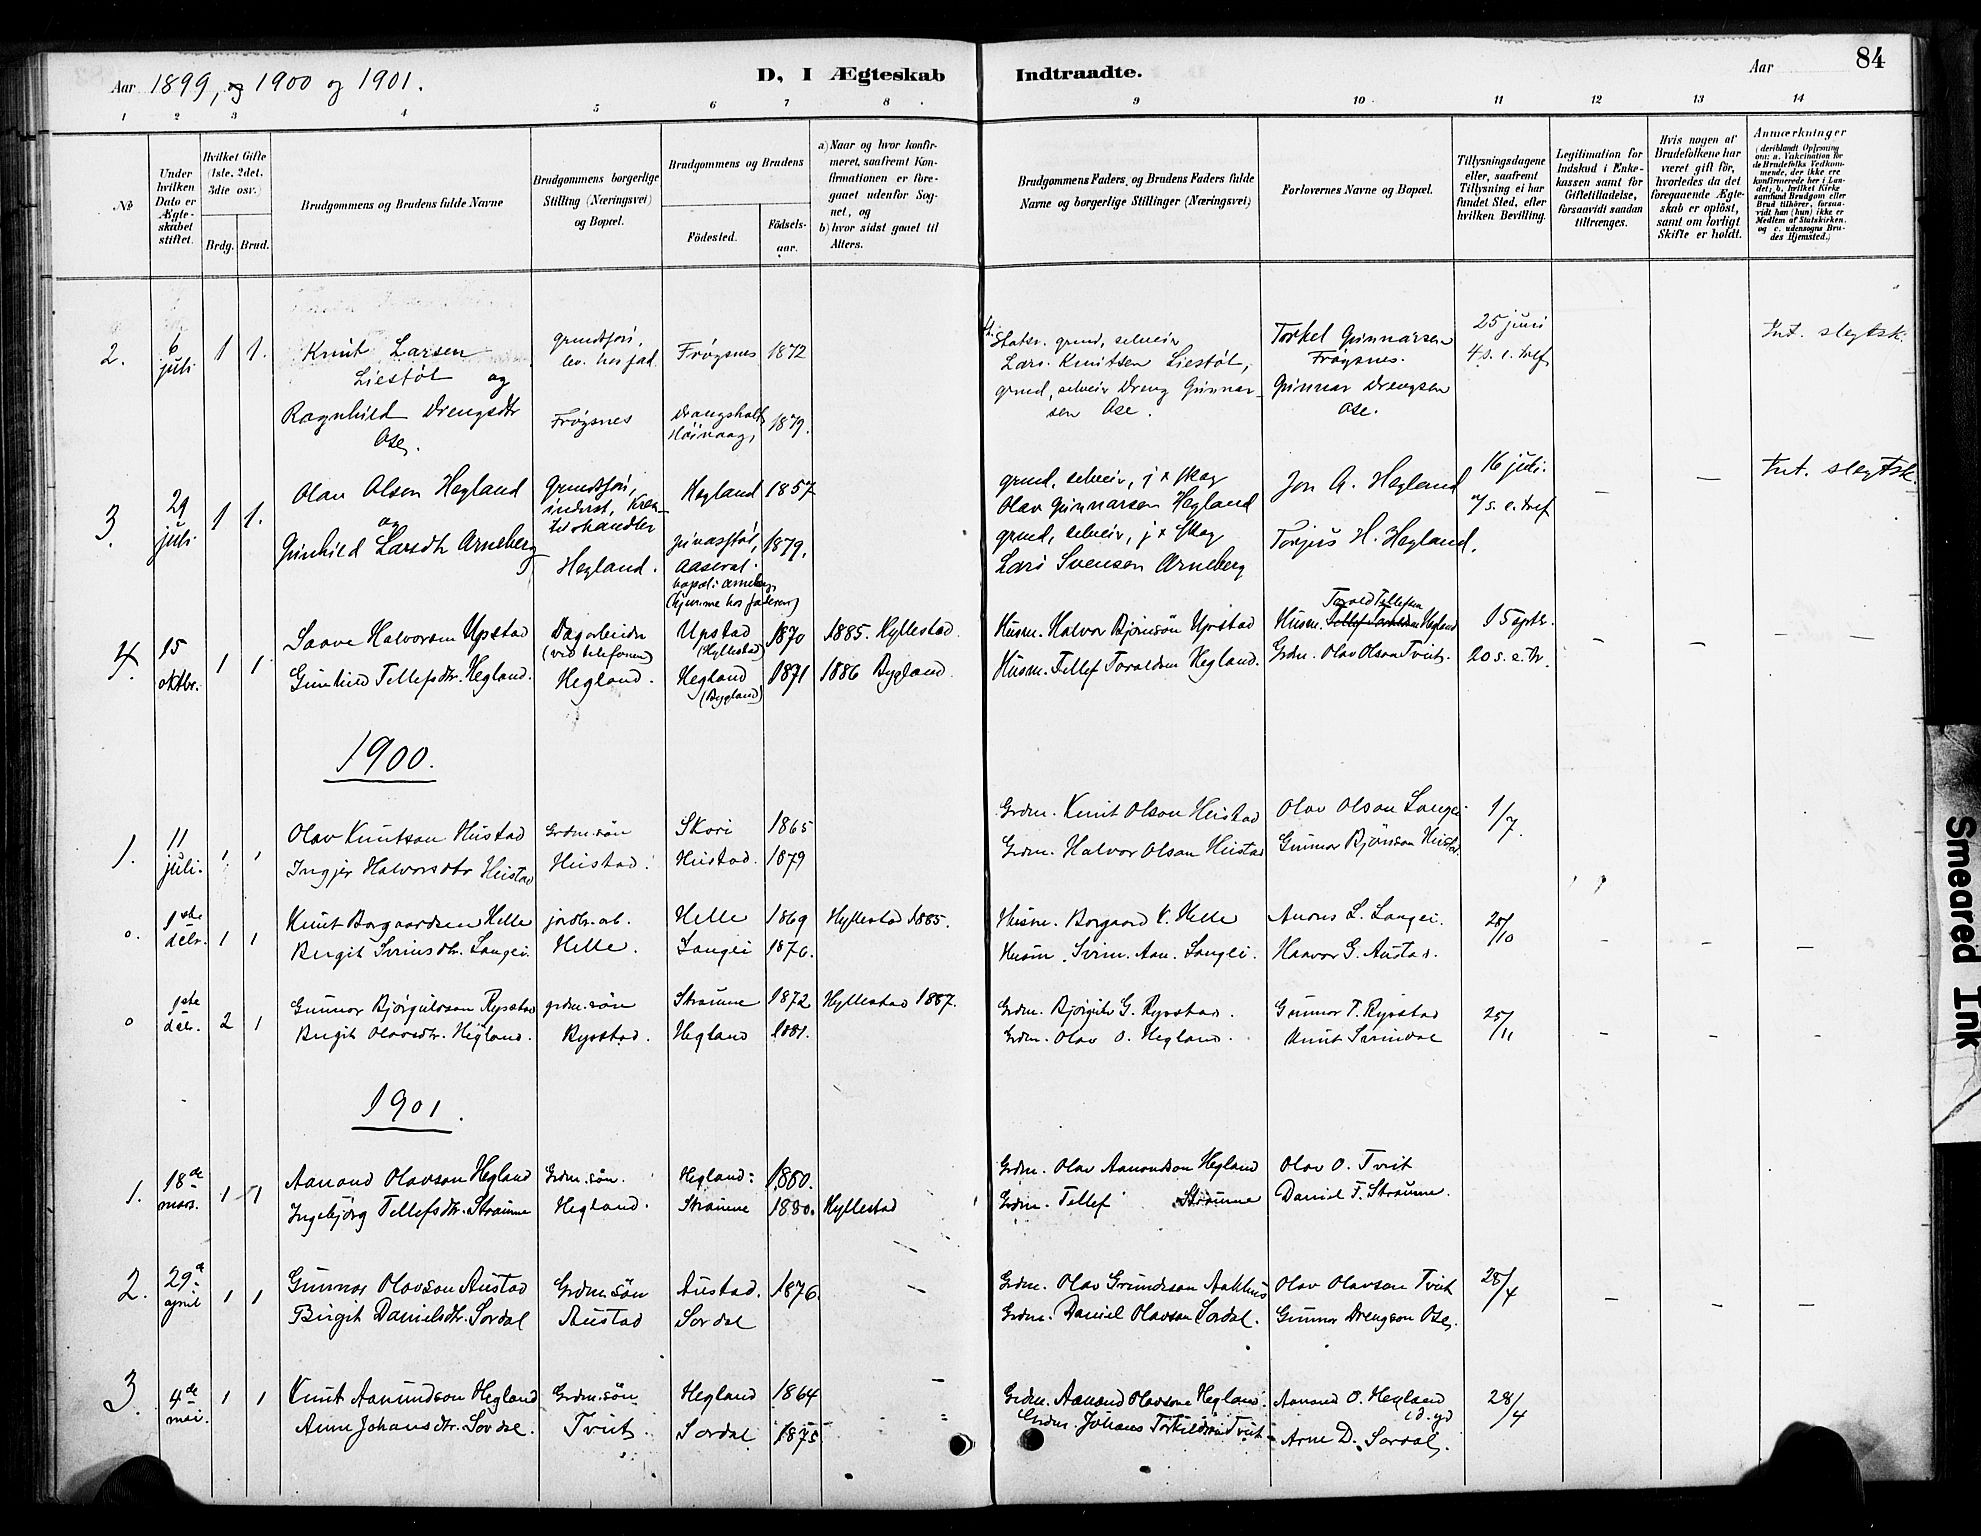 Aar 1899, og 1900 og 1901.
D, I Ægteskab Indtraadte.
Aar
84
1 2 3 4 5 6 7 8 9 10 11 12 13 14
No
Under hvilken Dato er Ægteskabet stiftet.
Hvilket Gifte (1ste, 2det, 3die osv.)
Brdg. Brud.
Brudgommens og Brudens fulde Navne
Brudgommens borgerlige Stilling (Næringsvei) og Bopæl.
Brudgommens og Brudens
Fødested.
Fødselsaar.
a) Naar og hvor konfirmeret, saafremt Konfirmationen er foregaaet udenfor Sognet, og
b) hvor sidst gaaet til Alters.
Brudgommens Faders og Brudens Faders fulde Navne og borgerlige Stillinger (Næringsvei)
Forlovernes Navne og Bopæl.
Tillysningsdagene eller, saafremt Tillysning ei har fundet Sted, efter hvilken Bevilling.
Legitimation for Indskud i Enkekassen samt for Giftetilladelse, forsaavidt saadan tiltrænges.
Hvis nogen af Brudefolkene har været gift før, hvorledes da det foregaaende Ægteskab er opløst, samt om lovligt Skifte er holdt.
Anmærkninger (deriblandt Oplysning om: a. Vakcination for de Brudefolks Vedkommende, der ikke ere konfirmerede her i Landet; b. hvilket Kirkesamfund Brudgom eller Brud tilhører, forsaavidt han (hun) ikke er Medlem af Statskirken, og c. udensogns Brudes Hjemsted.)
2. 6 juli 1 1. Knut Larsen Liestøl og
Frøysnes 1872
grund, selveier
Lars Knutsen Liestøl,
Torkel Gunnarsen Frøysnes.
25 juni
4 s. e. tref
Int. slegtsk.
Ragnhild Drengsdtr Ose.
Frøysnes
Drangsholt
1879.
grund, selveier Dreng Gunnarsen Ose.
Gunnar Drengsen Ose.
3. 29 juli 1 1. Olav Olsen Hegland og
Hegland 1857
grund, selveier, j x skog
Olav Gunnarsen Hegland
Jon A. Hegland
16 juli.
7 s. e. tref
— — Int. slegtsk.
Gunhild Larsdtr Arneberg
Hegland.
Aaseral.
1879.
grund, selveier, j x skog
Lars Svensen Arneberg
Torjus H. Hegland.
4. 15 oktbr. 1 1 Saave Halvorsen Upstad
Dagarbeider (ved telefonen)
Upstad (Hyllestad) 1870 1885. Hyllestad.
Husm. Halvor Bjørnsøn Upstad
Husm. Torald Tellefsen Hegland
15 sptbr.
Gunhild Tellefsdtr. Hegland. Hegland. Hegland (Bygland) 1871 1886 Bygland.
Husm. Tellef Toraldsen Hegland.
Grdm. Olav Olson Tveit.
20 s. e. tr.
— — —
1900.
1. 11 juli. 1 1 Olav Knutson Heistad Grdm.søn Skori 1865
Grdm. Knut Olson Heistad Olav Olson Langei 1/7.
Ingjer Halvorsdtr Heistad Heistad. Heistad. 1879
Grdm. Halvor Olson Heistad Gunnar Bjørnson Heistad.
1ste dcbr. 1 1 Knut Borgaardsen Helle jordbr.arb. Helle 1869 Hyllestad 1885.
Husm. Borgaard K. Helle Anders L. Langei. 28/10
Birgit Sveinsdtr. Langei. Helle. Langei 1876.
Husm. Svein Aan. Langei. Haavor G. Austad.
— — —
1ste dcbr. 2 1 Gunnar Bjørgulvson Rysstad grdm.søn Straume 1872 Hyllestad 1887.
Grdm. Bjørgulv G. Rysstad. Gunnar T. Rysstad 25/11
Birgit Olavsdtr. Hegland. Rysstad. Hegland 1881.
Grdm. Olav O. Hegland. Knut Sveindal
— — —
1901.
1. 18de mars. 1 1 Aanund Olavson Hegland Grdm.søn. Hegland: 1880.
Grdm. Olav Aanundson Hegland Olav O. Tveit
Ingebjørg Tellefsdtr. Straume Hegland. Straume 1880. Hyllestad
Grdm. Tellef Straume Daniel T. Straume.
2. 29de april 1 1 Gunnar Olavson Austad Grdm.søn Austad. 1876.
Grdm. Olav Gundeson Aakhus Olav Olavson Tveit 28/4
Birgit Danielsdtr. Sordal Austad Sordal
Grdm. Daniel Olavson Sordal. Gunnar Drengson Ose.
— — —
3. 4de mai. 1 1 Knut Aanundson Hegland Grdm.søn Hegland 1864
Grdm. Aanund Olavson Hegland. Aanund O. Hegland d. yd 28/4
Anne Johansdtr. Sordal. Tveit. Sordal 1875
Grdm. Johans Torkildsøn Tveit Arne D. Sordal.
Smeared Ink